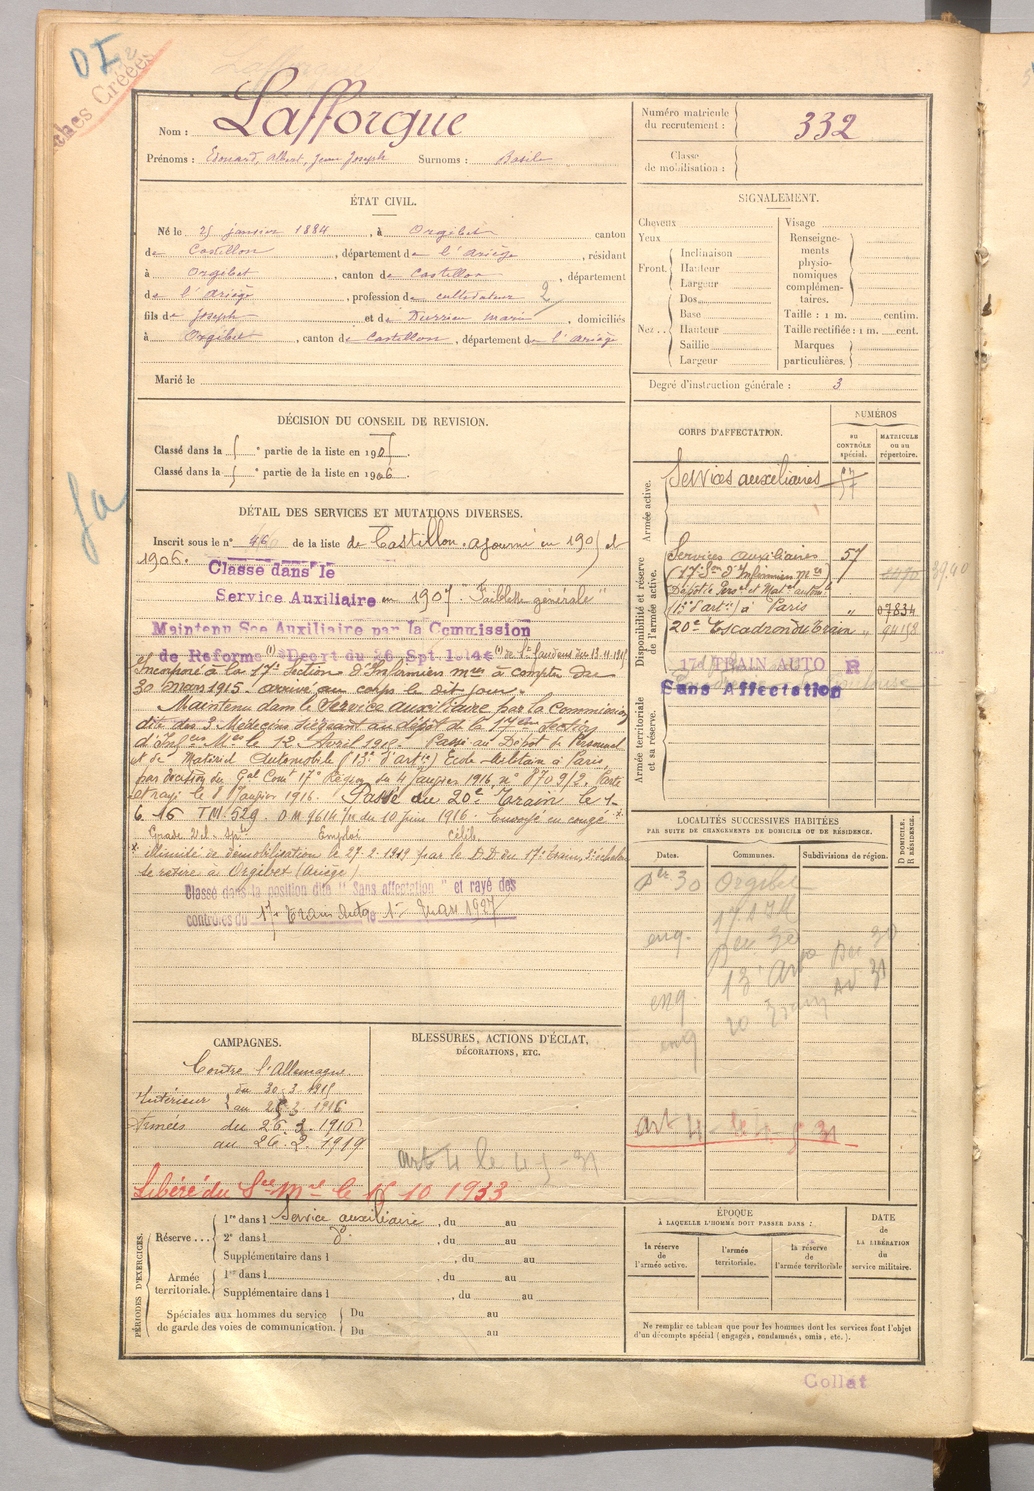 D I 2
Fiches Créées
Nom : Lafforgue
Prénoms : Edouard, Albert, Jean Joseph Surnoms : Basile
Numéro matricule du recrutement : 332
Classe de mobilisation :
ÉTAT CIVIL.
Né le 25 janvier 1884, à Orgibet canton
de Castillon, département de l'Ariège, résidant
à Orgibet, canton de Castillon, département
de l'Ariège, profession de cultivateur 2
fils de Joseph et de Durrieu Marie, domiciliés
à Orgibet, canton de Castillon, département de l'Ariège
Marié le
SIGNALEMENT.
Cheveux
Yeux
Front. Inclinaison
Hauteur
Largeur
Nez. Dos
Base
Hauteur
Saillie
Largeur
Visage
Renseignements physionomiques complémentaires.
Taille : 1 m. centim.
Taille rectifiée : 1 m. cent.
Marques particulières.
Degré d'instruction générale : 3
DÉCISION DU CONSEIL DE REVISION.
Classé dans la e partie de la liste en 1905.
Classé dans la e partie de la liste en 1906.
DÉTAIL DES SERVICES ET MUTATIONS DIVERSES.
Inscrit sous le n° 46 de la liste de Castillon. ajourné en 1905 et
1906. Classé dans le
Service Auxiliaire en 1907 "Faiblesse générale"
Maintenu Sce Auxiliaire par la Commission
de Reforme (1) Décrt du 26 Spt 1914 (1) de St Gaudens du 13-11-1915
Incorporé à la 17e Section d'Infirmiers mres à compter du
30 mars 1915. arrivé au corps le dit jour.
Maintenu dans le Service auxiliaire par la Commission
dite des 3 Médecins siégeant au dépôt de la 17ème section
d'Infres Mres le 12 Avril 1915. Passé au Dépôt de Personnel
et de Matériel Automobile (13e d'artie) Ecole Militaire à Paris,
par décision du Gal Comt 17e Région du 4 Janvier 1916, n° 8709/2. Parti
et rayé le 8 Janvier 1916. Passé au 20e Train le 1-
6. 16 TM. 529. O M 9614/M du 10 Juin 1916. Envoyé en congé *
Grade Emploi célib.
* illimité de démobilisation le 27-2-1919 par le D.D. du 17e train, 3e échelon
se retire à Orgibet (Ariège)
Classé dans la position dite "Sans affectation" et rayé des
contrôles du 17e Train Auto le 1er Mars 1927
CORPS D'AFFECTATION.
NUMÉROS
au CONTRÔLE spécial.
MATRICULE ou au répertoire.
Armée active.
Services auxiliaires 57
Disponibilité et réserve de l'armée active.
Services auxiliaires 57
(17e Son d'Infirmiers mres)
Dépôt de Persel et Matel autom.
(13e d'artie) à Paris " 07834
20e Escadron du Train " 94158
17e TRAIN AUTO R
Sans Affectation
Armée territoriale et sa réserve.
LOCALITÉS SUCCESSIVES HABITÉES
PAR SUITE DE CHANGEMENTS DE DOMICILE OU DE RÉSIDENCE.
Dates. Communes. Subdivisions de région.
D DOMICILE. R RÉSIDENCE.
per 30 Orgibet
eng.
eng
eng
art 4 le 4-5-31
CAMPAGNES.
Contre l'Allemagne.
Intérieur du 30.3.1915
au 25.3.1916
Armées du 26.3.1916
au 26.2.1919
BLESSURES, ACTIONS D'ÉCLAT,
DÉCORATIONS, ETC.
art 4 le 4-5-31
Libéré du Sce Mre le 15 10 1933
PÉRIODES D'EXERCICES.
Réserve... 1re dans l Service auxiliaire, du au
2e dans l do, du au
Supplémentaire dans l, du au
Armée territoriale. 1re dans l, du au
Supplémentaire dans l, du au
Spéciales aux hommes du service de garde des voies de communication. Du au
Du au
ÉPOQUE
À LAQUELLE L'HOMME DOIT PASSER DANS :
la réserve de l'armée active.
l'armée territoriale.
la réserve de l'armée territoriale
DATE de LA LIBÉRATION du service militaire.
Ne remplir ce tableau que pour les hommes dont les services font l'objet
d'un décompte spécial (engagés, condamnés, omis, etc.).
Collat